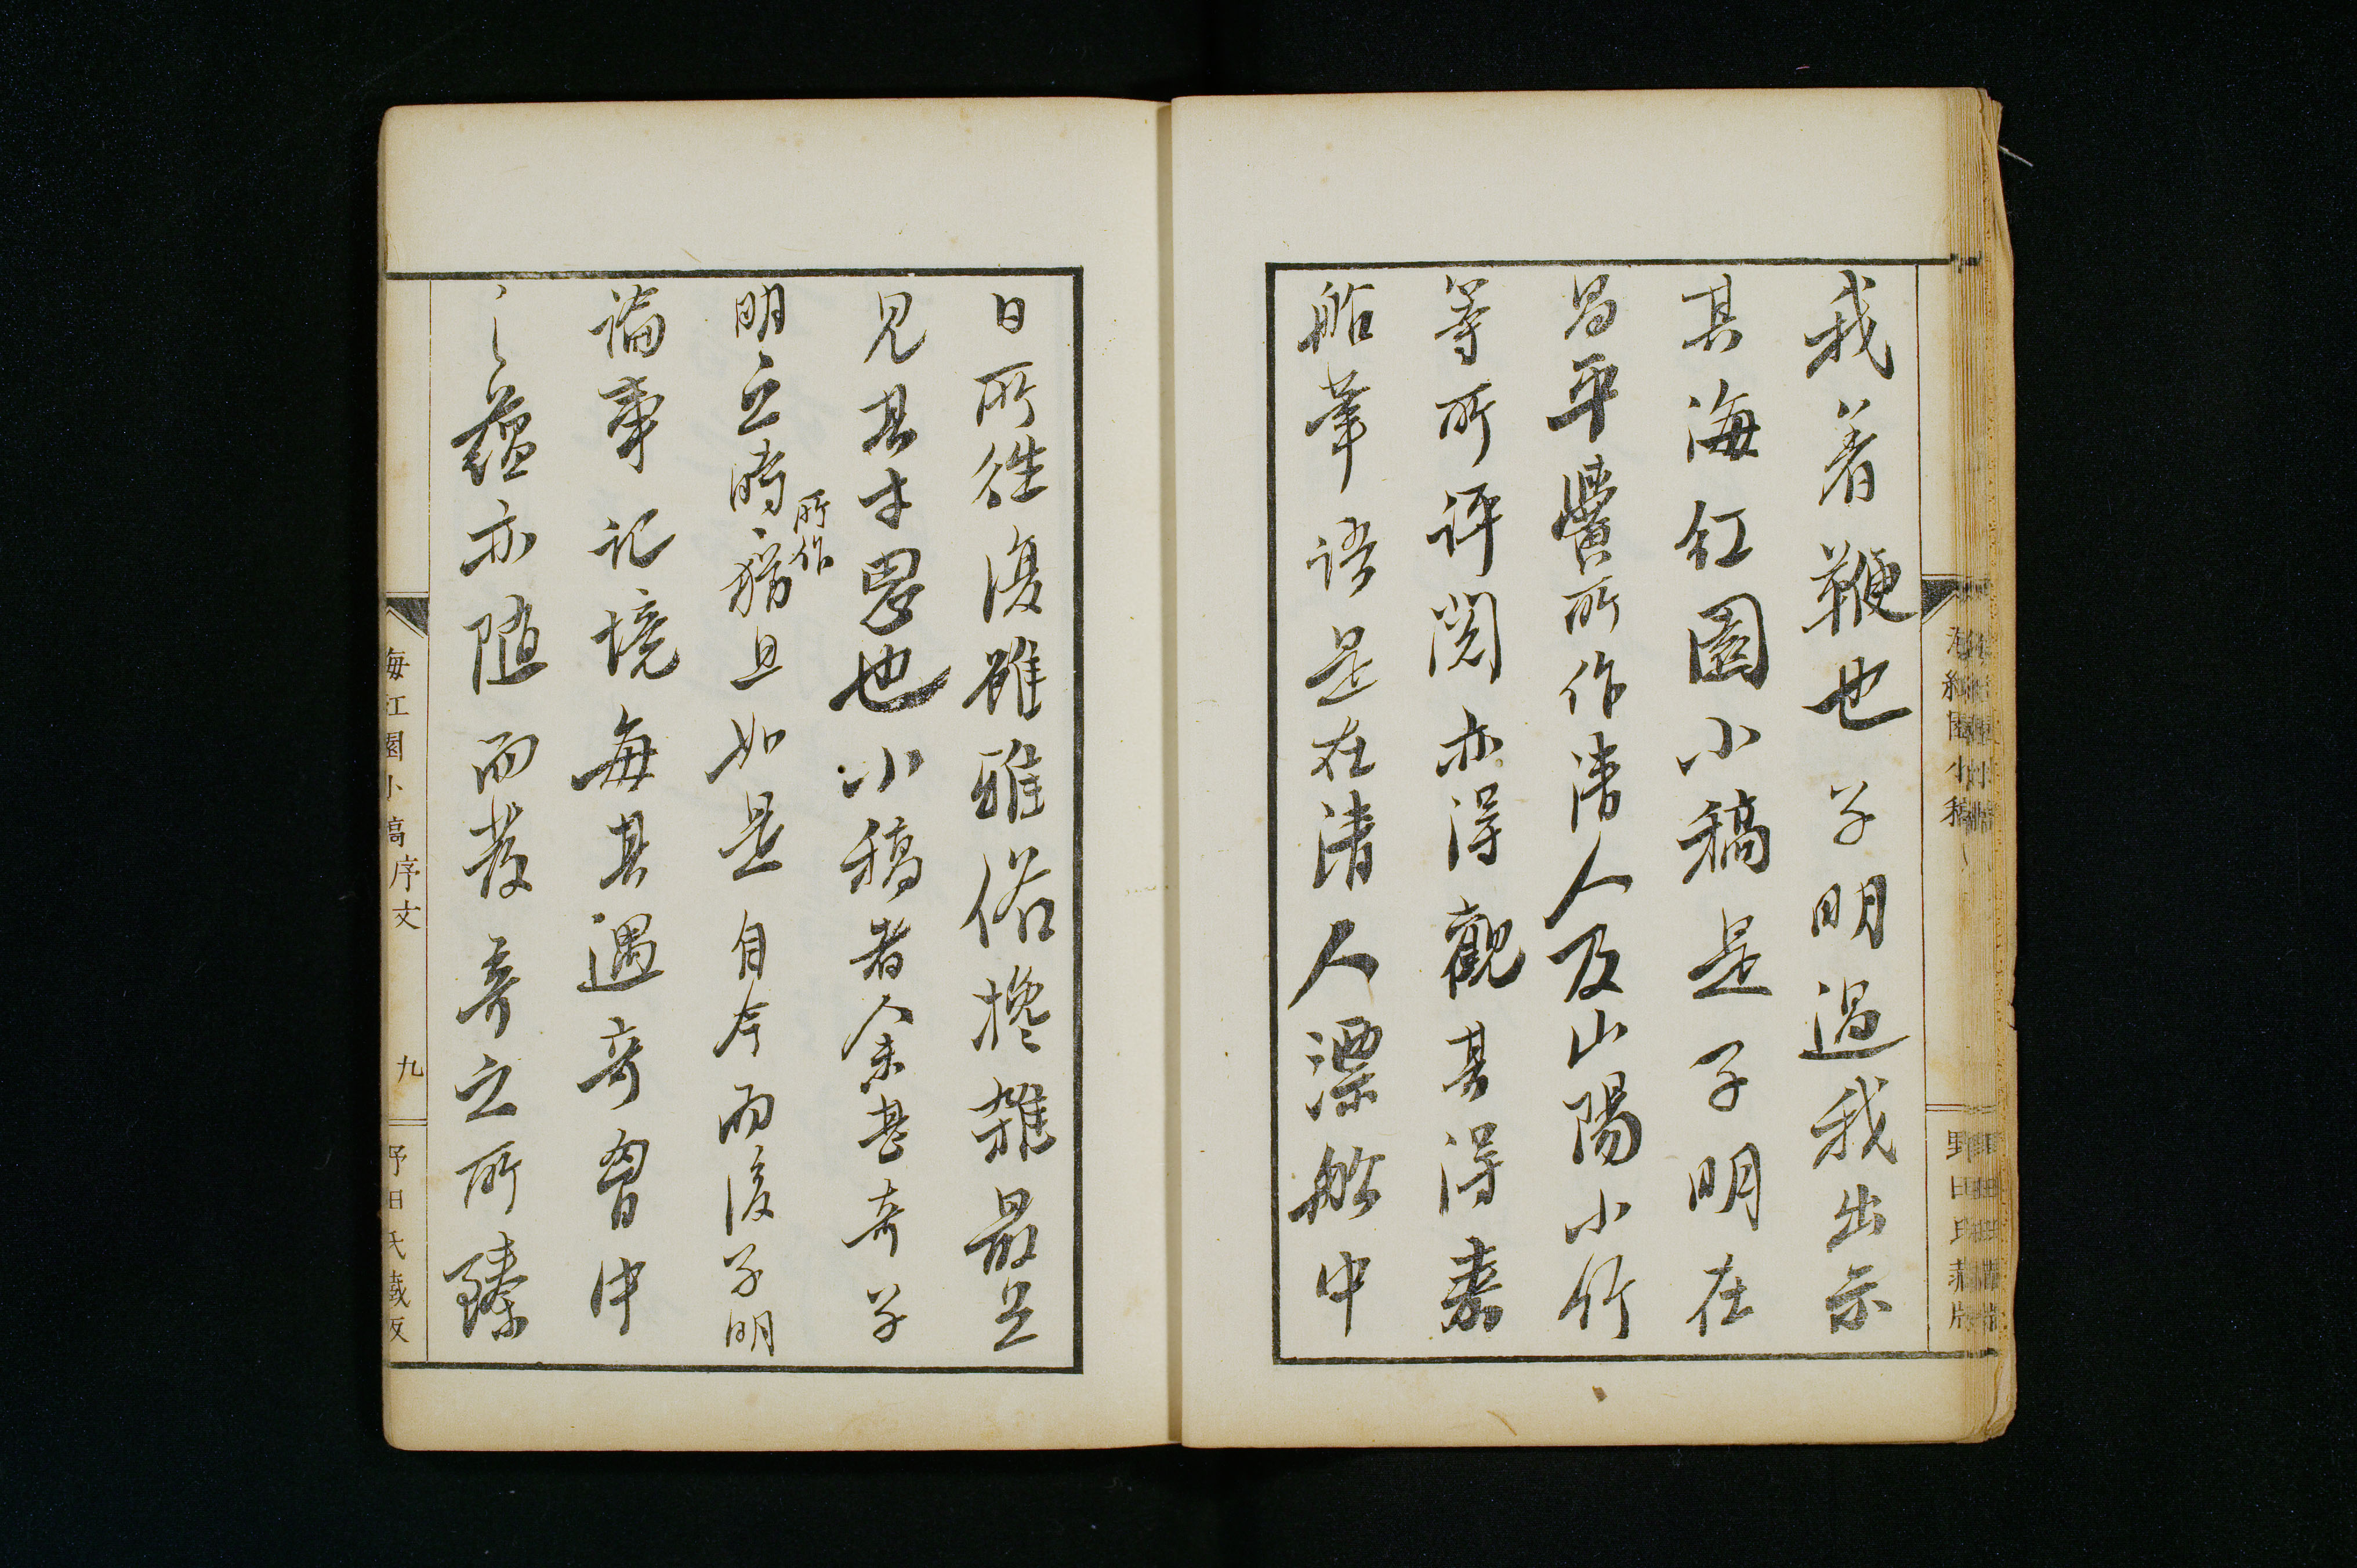 我着鞭也子明過我出示
其海紅園小稿是子明在
昌平黌所作清人及山陽小竹
等所評閱亦得觀其得泰
船筆語是在清人漂船中
日所往復雖雅俗攙雜最足
見其才思也小稿者余甚奇子
明之時所作猶且如是自今而後子明
論事記境每其遇奇胷中
之蘊亦随而發奇之所臻
海紅園小稿
野田氏蔵版
海紅園小稿序文
九
野田氏蔵版